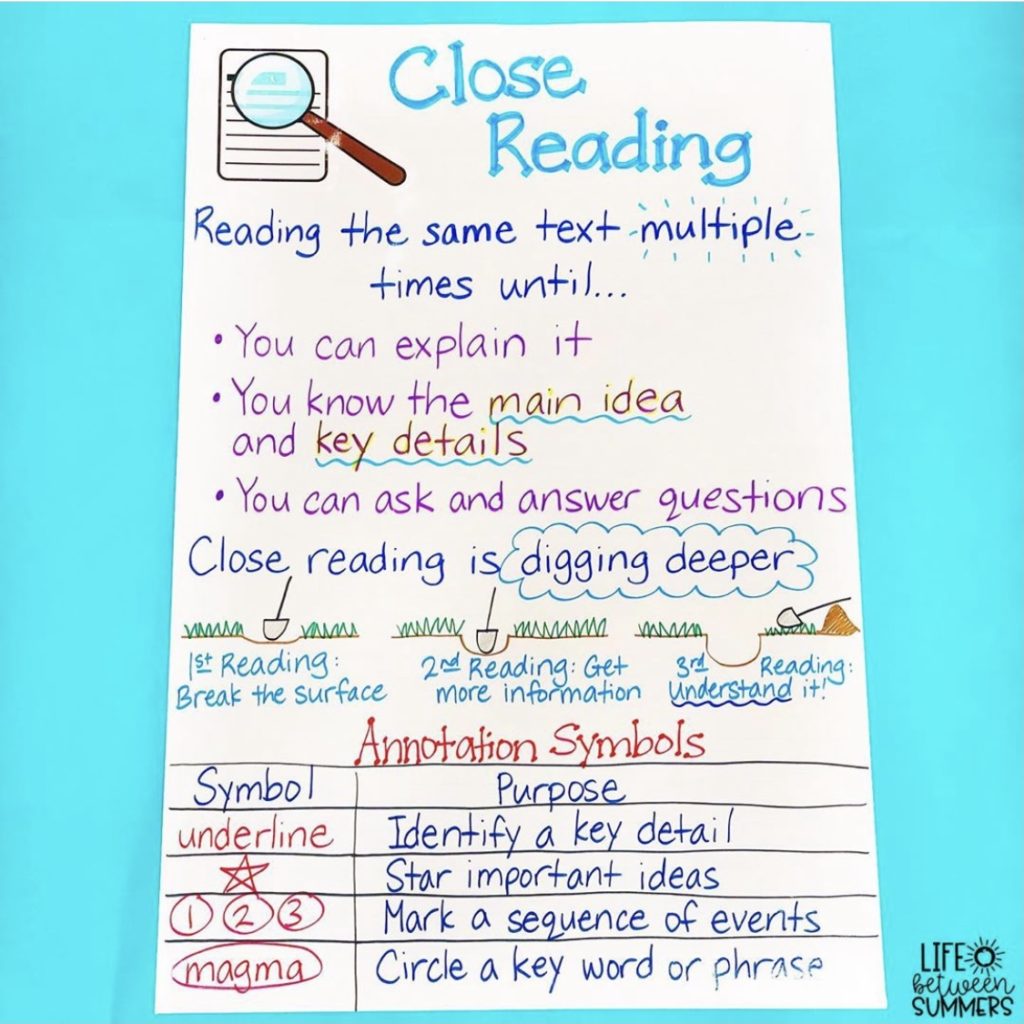 Close
Reading
Reading the same text multiple
times until...
• You can explain it
• You know the main idea
and key details
• You can ask and answer questions
Close reading is digging deeper
1st Reading:
Break the surface
2nd Reading: Get
more information
3rd Reading:
Understand it!
Annotation Symbols
Symbol Purpose
underline Identify a key detail
☆ Star important ideas
① ② ③ Mark a sequence of events
magma Circle a key word or phrase
LIFE
between
SUMMERS